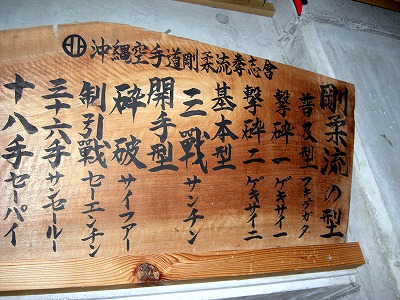 沖縄空手道剛柔流拳志會
剛柔流の型
普及型 フキュウカタ
撃砕一 ゲキサイ一
撃砕二 ゲキサイ二
基本型
三戰 サンチン
開手型
砕破 サイファー
制引戰 セーエンチン
三十六手 サンセールー
十八手 セーパイ